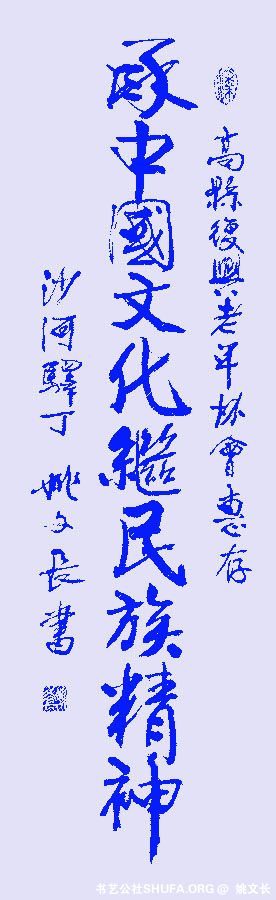 高縣復興老年协會惠存
承中國文化繼民族精神
沙河驛丁 姚文長書
书艺公社SHUFA.ORG @ 姚文长